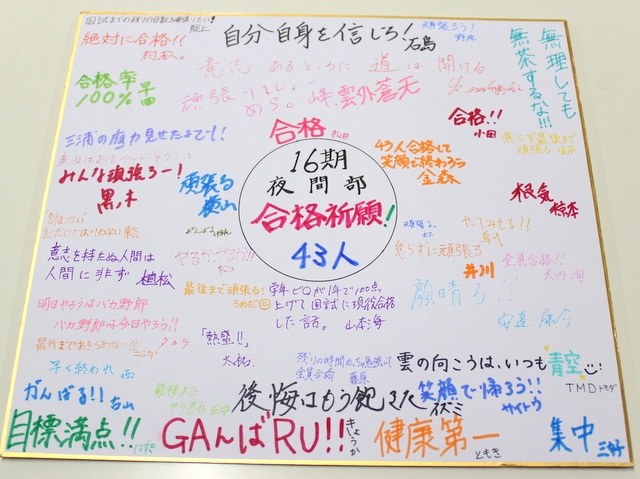 自分自身を信じろ!
石島
頑張ろう!
絶対に合格!!
無理しても
無茶するな!!!
合格率
100%
早田
意志あるところに道は開ける
頑張りましょ
雲外蒼天
合格!!
小田
合格
三浦の底力見せたよでし!
みんな頑張ろー!
黒木
頑張る
横山
16期
夜間部
合格祈願!
43人
43人合格して
笑顔で終わろう
金森
根気
椋本
やってみせる!!
怠らずに頑張る
井川
全員合格!!
意志を持たぬ人間は
人間に非ず 植松
やるかやろう!!
最後まで頑張る!
学年ビリが1年で100点
上げて国試に現役合格
した話。 山本海
顔晴る!!
安達 康介
明日やろうはバカ野郎
バカ野郎は今日やろう!!
最後まであきらめない!!
「熱盛!!」
大栃
早く終われ 西
残りの時間め
全員合格
雲の向こうは、いつも青空
TMDトモダ
がんばる!!
古山
最後まで
やりきる 田中
後悔はもう飽きた
イズミ
笑顔で帰ろう!!
サイトウ
目標満点!!
GAんばRU!!
きょうか
健康第一
ともき
集中
三好